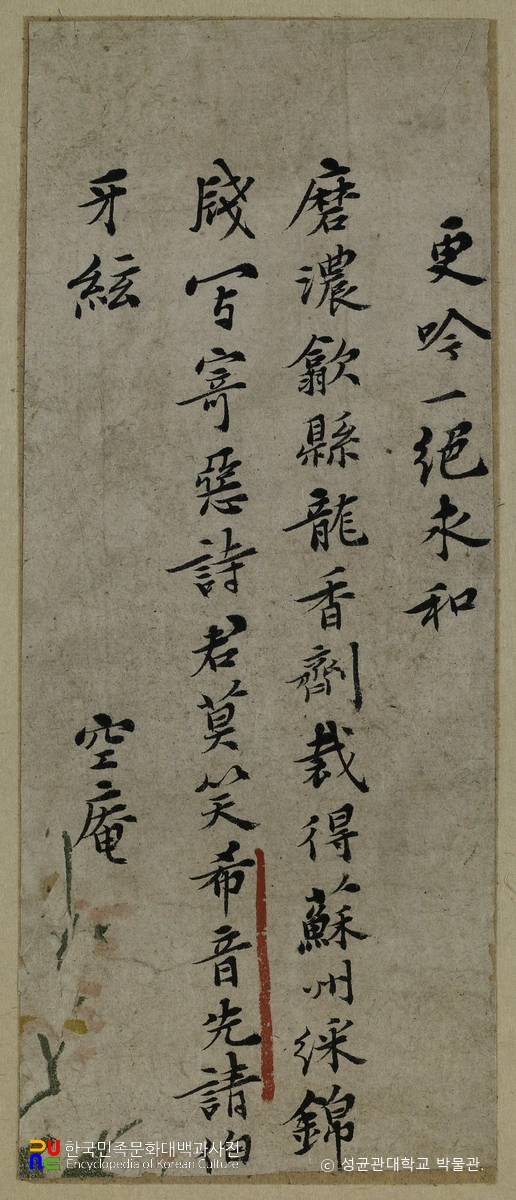 更吟一絕求和
磨濃歙縣龍香劑裁得蘇州綵錦
牋写寄惡詩君莫笑希音先請伯
牙絃
空庵
한국민족문화대백과사전
Encyclopedia of Korean Culture
© 성균관대학교 박물관.